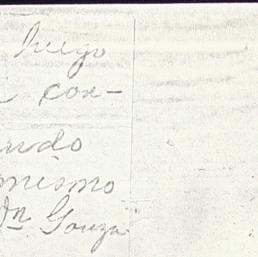 luego
con-
ndo
mismo
Dn Gonza